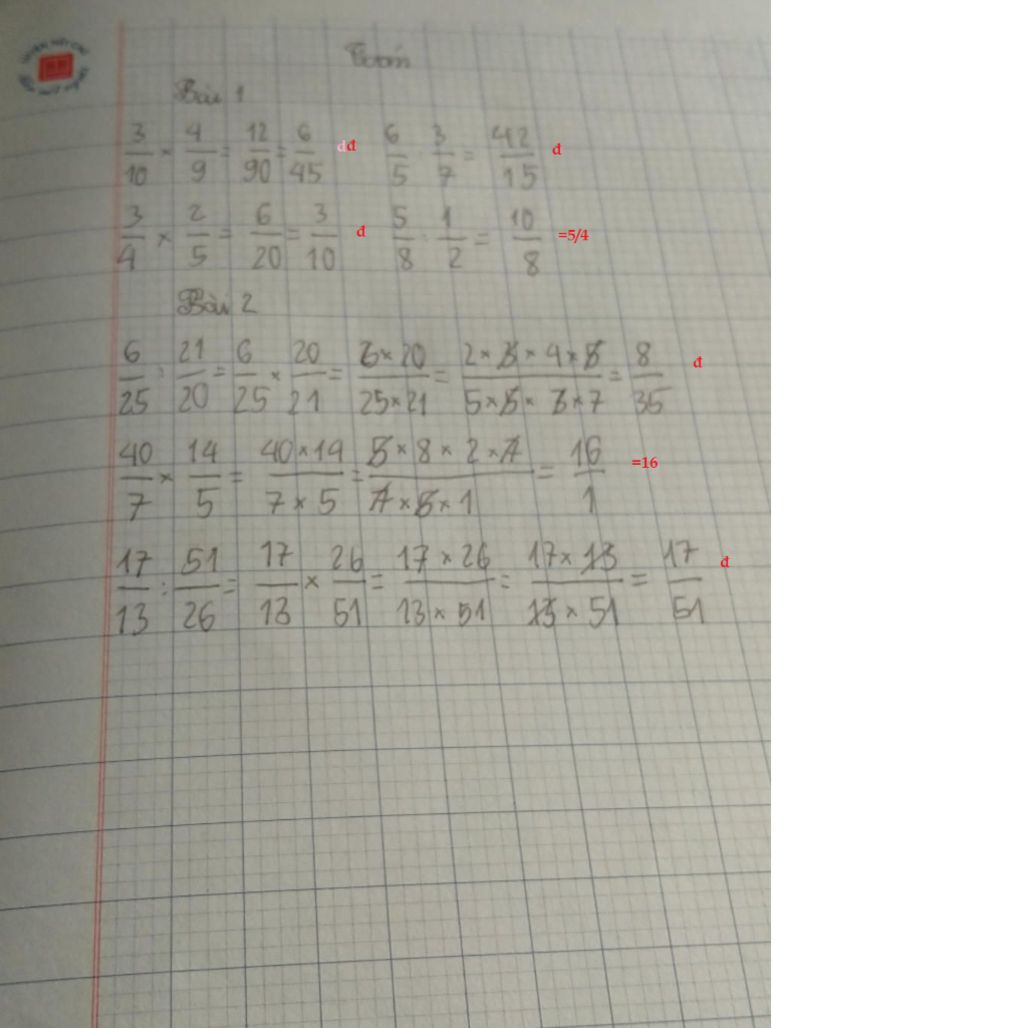 Toán
Bài 1
3/10 × 4/9 = 12/90 = 6/45 dđ 6/5 : 3/7 = 42/15 đ
3/4 × 2/5 = 6/20 = 3/10 đ 5/8 : 1/2 = 10/8 =5/4
Bài 2
6/25 : 21/20 = 6/25 × 20/21 = 6×20/25×21 = 2×3×4×5/5×5×3×7 = 8/35 đ
40/7 × 14/5 = 40×14/7×5 = 5×8×2×7/7×5×1 = 16/1 =16
17/13 : 51/26 = 17/13 × 26/51 = 17×26/13×51 = 17×13/13×51 = 17/51 đ